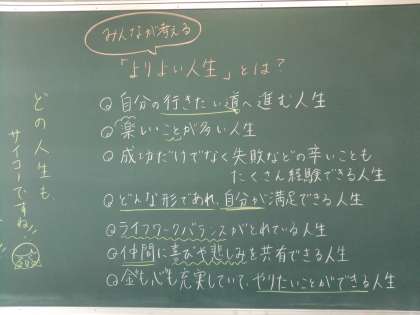 みんなが考える
「よりよい人生」とは?
自分の行きたい道へ進む人生
楽しいことが多い人生
成功だけでなく失敗などの辛いことも
たくさん経験できる人生
どんな形であれ、自分が満足できる人生
ライフワークバランスがとれている人生
仲間に喜びや悲しみを共有できる人生
金も心も充実していて、やりたいことができる人生
どの人生も
サイコーですね!